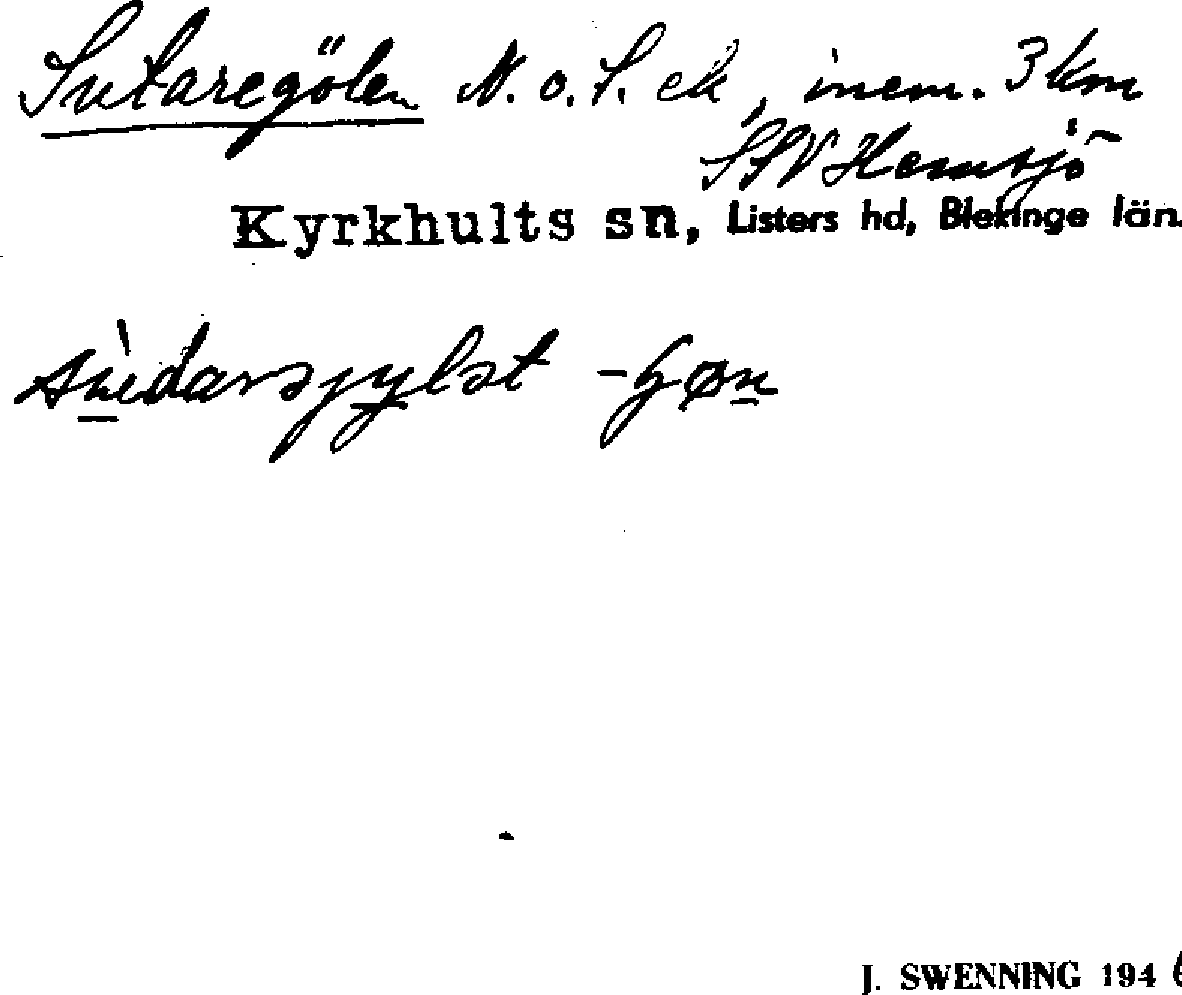 Sutaregölen N. o. S. ek, inem. 3 km
SSV Hemsjö
Kyrkhults sn, Listers hd, Blekinge län.
J. SWENNING 194